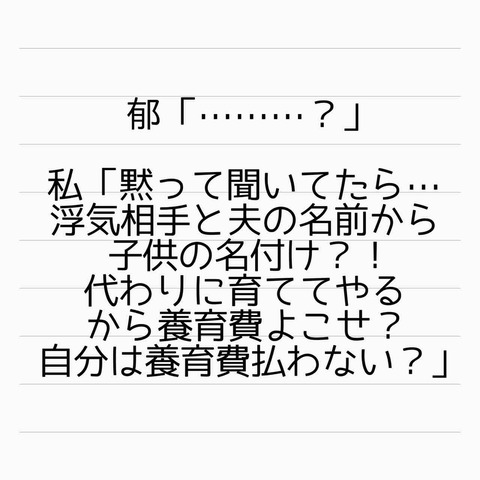 郁「………？」
私「黙って聞いてたら…
浮気相手と夫の名前から
子供の名付け？！
代わりに育ててやる
から養育費よこせ？
自分は養育費払わない？」